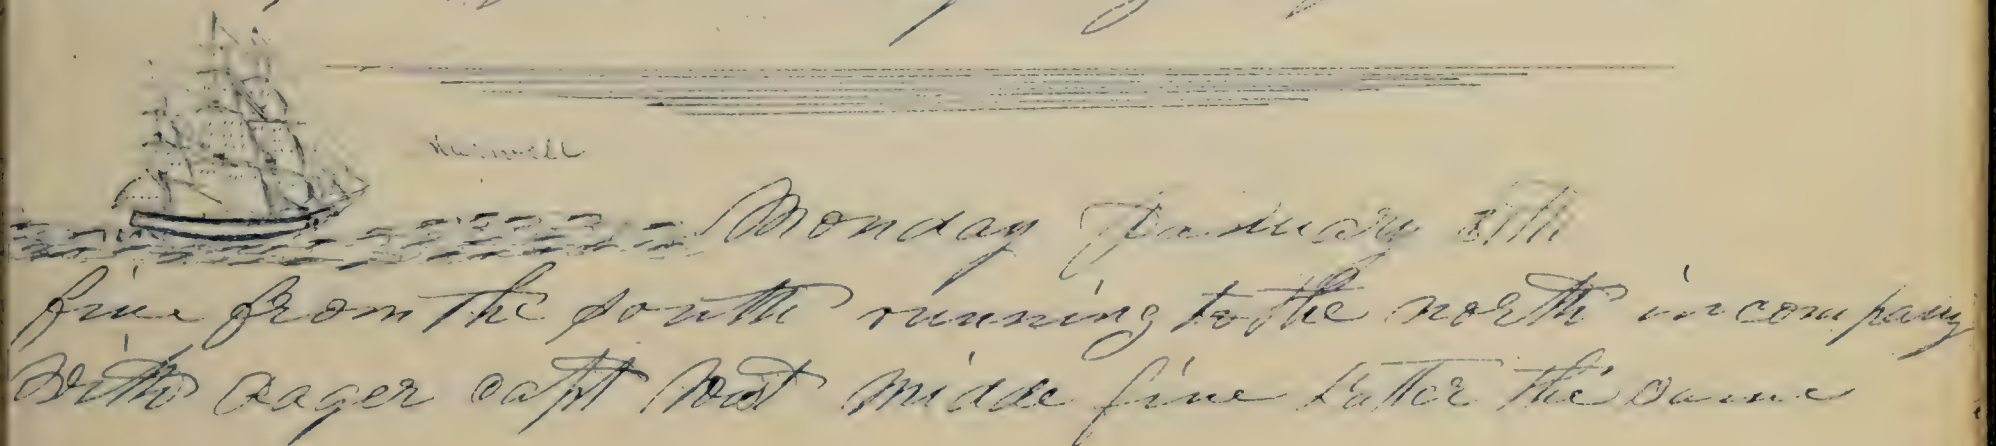 Monday January 8th
fine from the south running to the north in company
With Eager capt West midde fine Latter the same